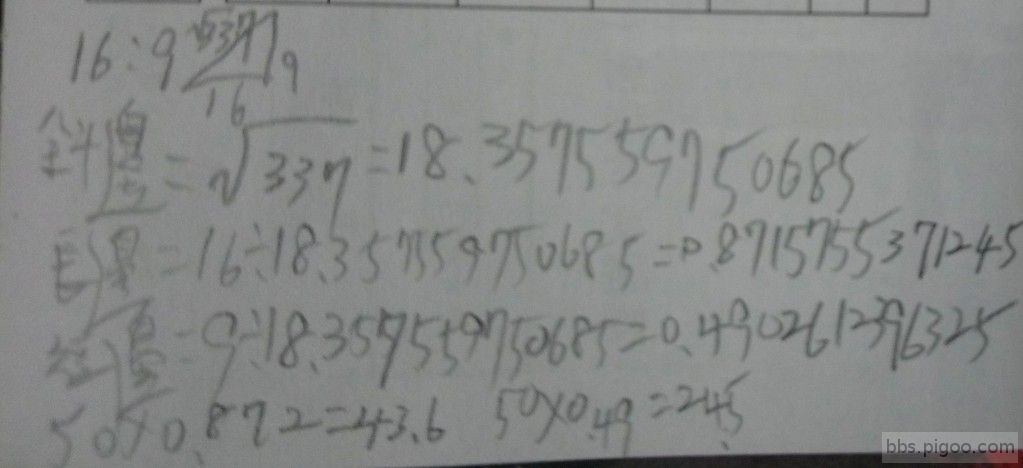 16:9 √337 9
16
斜邊=√337=18.357559750685
長邊=16÷18.357559750685=0.8715755371245
短邊=9÷18.357559750685=0.4902612396325
50×0.872=43.6 50×0.49=24.5
bbs.pigoo.com